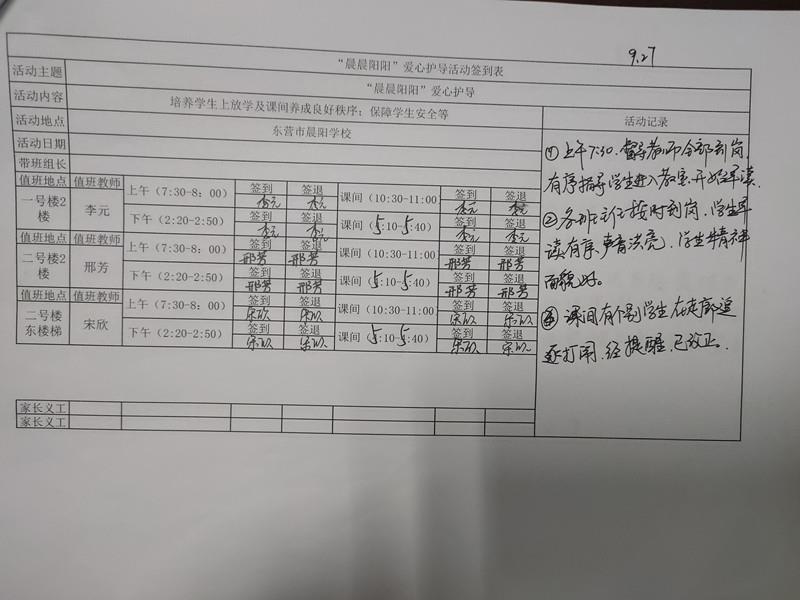 9.27
“晨晨阳阳”爱心护导活动签到表
活动主题 “晨晨阳阳”爱心护导
活动内容 培养学生上放学及课间养成良好秩序；保障学生安全等
活动地点 东营市晨阳学校
活动日期
带班组长
值班地点 值班教师 上午（7:30-8：00） 签到 签退 课间（10:30-11:00） 签到 签退
一号楼2楼 李元 李元 李元 李元 李元
下午（2:20-2:50） 签到 签退 课间（5:10-5:40） 签到 签退
李元 李元 李元 李元
值班地点 值班教师 上午（7:30-8：00） 签到 签退 课间（10:30-11:00） 签到 签退
二号楼2楼 邢芳 邢芳 邢芳 邢芳 邢芳
下午（2:20-2:50） 签到 签退 课间（5:10-5:40） 签到 签退
邢芳 邢芳 邢芳 邢芳
值班地点 值班教师 上午（7:30-8：00） 签到 签退 课间（10:30-11:00） 签到 签退
二号楼东楼梯 宋欣 宋欣 宋欣 宋欣 宋欣
下午（2:20-2:50） 签到 签退 课间（5:10-5:40） 签到 签退
宋欣 宋欣 宋欣 宋欣
家长义工
家长义工
活动记录
①上午7:30.督导教师全部到岗，
有序指导学生进入教室.开始早读.
②各班主任按时到岗.学生早
读有序、声音洪亮、学生精神
面貌好。
③课间有个别学生在走廊追
逐打闹.经提醒.已改正.